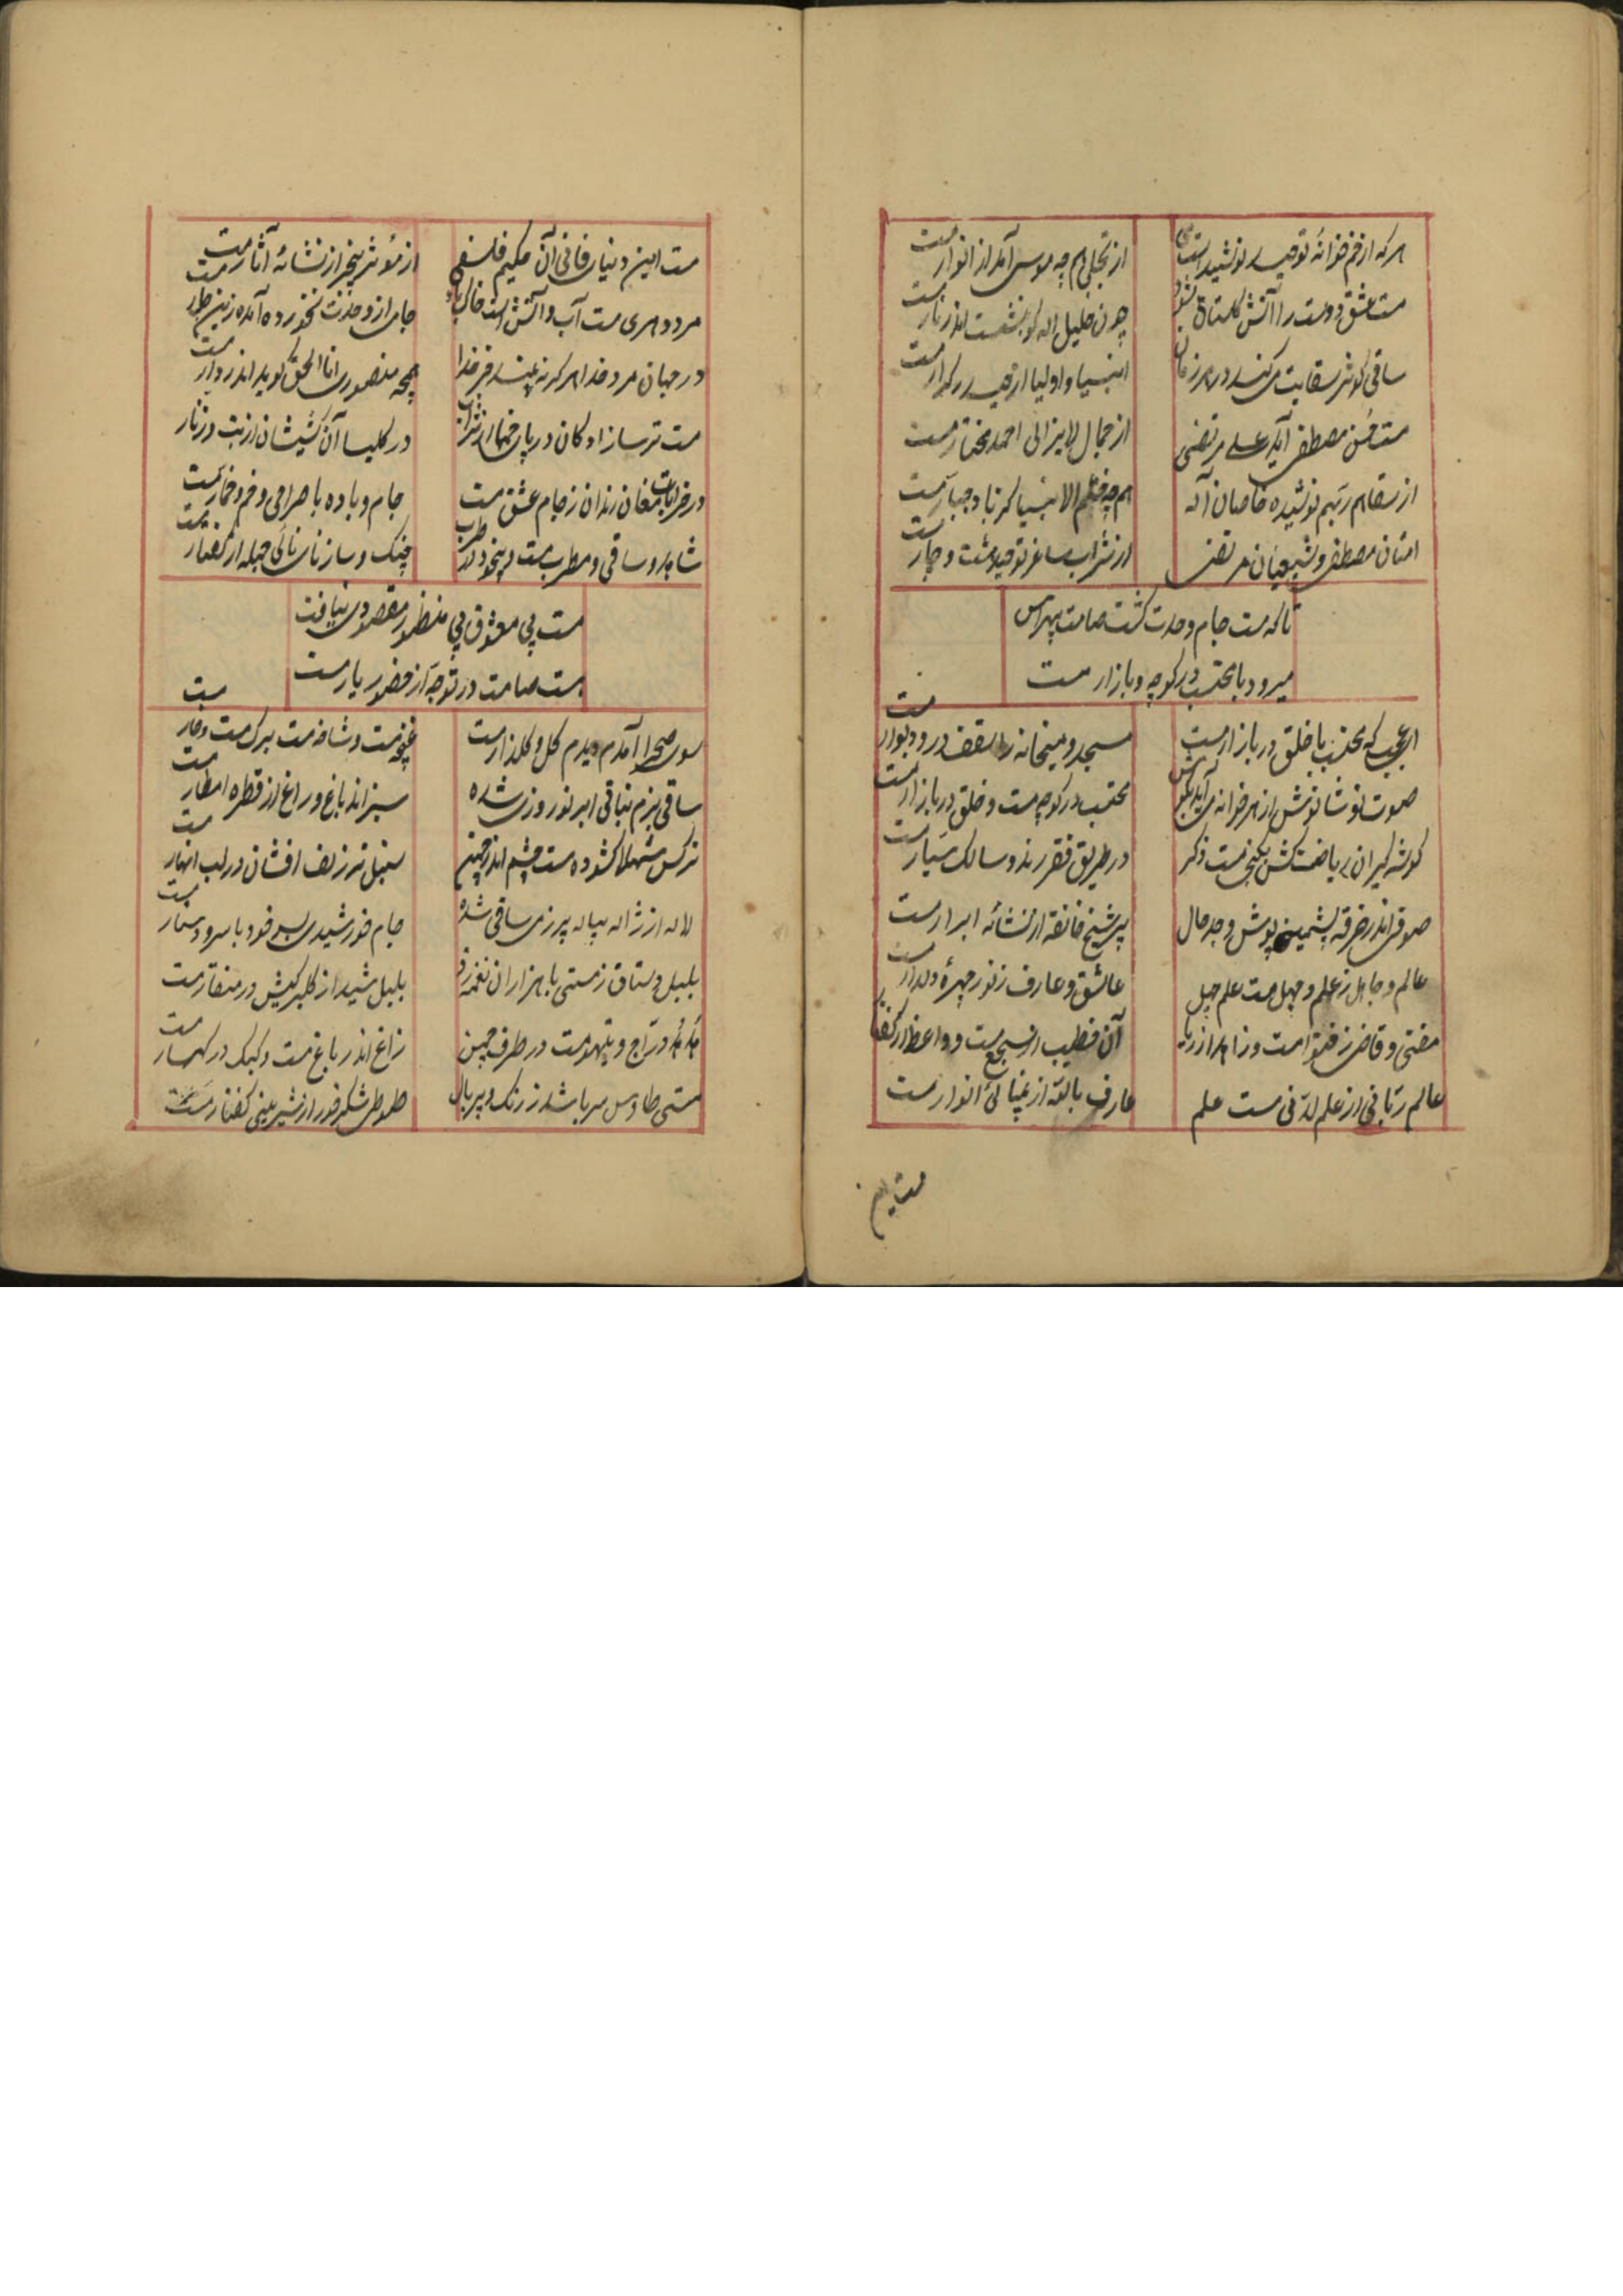 هر که از خم خانهٔ توحید نوشیدست می
از تجلی همچو موسی آمد از انوار مست
مست عشق دوست را آتش گلستان بشود
چون خلیل اله کو بنشست اندر نار مست
ساقی کوثر سقایت میکند در هر زمان
انبیا و اولیا از حیدر کرار مست
مست حسن مصطفی آید علی مرتضی
از جمال لایزالی احمد مختار مست
از سقاهم ربهم نوشیده خاصان اله
همچو ختم الانبیا کز باد جبار مست
امتان مصطفی و شیعیان مرتضی
از شراب ساغر توحید هشت و چار مست
تا که مست جام وحدت گشت صامت بهراس
میرود با محتسب در کوچه و بازار مست
ای عجب که محتسب با خلق در بازار مست
مسجد و میخانه را سقف و در و دیوار مست
صوت نوشانوش از هر خانه می آید بگوش
محتسب در کوچه مست و خلق در بازار مست
گوشه گیران ریاضت کش بکنجی مست ذکر
در طریق فقر رند و سالک سیار مست
صوفی اندر خرقه پشمینه پوش وجد حال
پیر شیخ خانقه از نشائه ابرار مست
عالم و جاهل ز علم و جهل مست علم جهل
عاشق و عارف ز نور چهرهٔ دلدار مست
مفتی و قاضی ز فتوا مست و زاهد از ریا
آن خطیب از سجع مست و واعظ از گفتار
عالم ربانی از علم لدنی مست علم
عارف بالله از پنهانی انوار مست
مست این
مست این دنیای فانی آن حکیم فلسفی
از مؤثر بیخبر از نشائه آثار مست
مرد دهری مست آب و آتش است خاک باد
جامی از وحدت نخورده آمده زین چار مست
در جهان مرد خدا هرگز نبیند جز خدا
همچه منصوری انا الحق گوید اندر دار مست
مست ترسازادگان در پای خمها از شراب
در کلیسا آن کشیشان از بت و زنار
در خرابات مغان رندان ز جام عشق مست
جام و باده با صراحی و خم و خمار مست
شاهد و ساقی و مطرب مست و بیخود در طرب
چنگ و ساز نای نائی جمله از مضمار مست
مست بی معشوق بی منظور مقصودی نیافت
هست صامت در توجه از حضور یار مست
سوی صحرا آمدم دیدم گل و گلزار مست
غنچه مست و شاخه مست و برگ مست و خار مست
ساقی بزم نباتی ابر نوروزی شده
سبز اندر باغ و راغ از قطره امطار مست
نرگس شهلا گشوده مست چشم اندر چمن
سنبل تر زلف افشان در لب انهار مست
لاله از ژاله پیاله پر ز می ساقی شده
جام خورشیدی بسر خود با سرو دستار مست
بلبل دستان ز مستی با هزاران نغمه زد
بلبل شیدا ز گلبرگیش در منقار مست
دراج و تیهو مست در طرف چمن
زاغ اندر باغ مست و کبک در کهسار مست
مستی طاوس سر باشد ز رنگ و پر بال
طوطی شکر خور از شیرینی گفتار مست